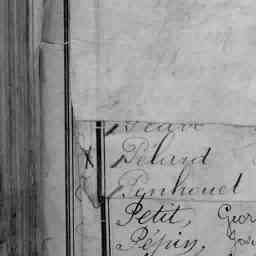 Jean
Pélard
Penhouet
Petit, Geor
Pépin, Jos